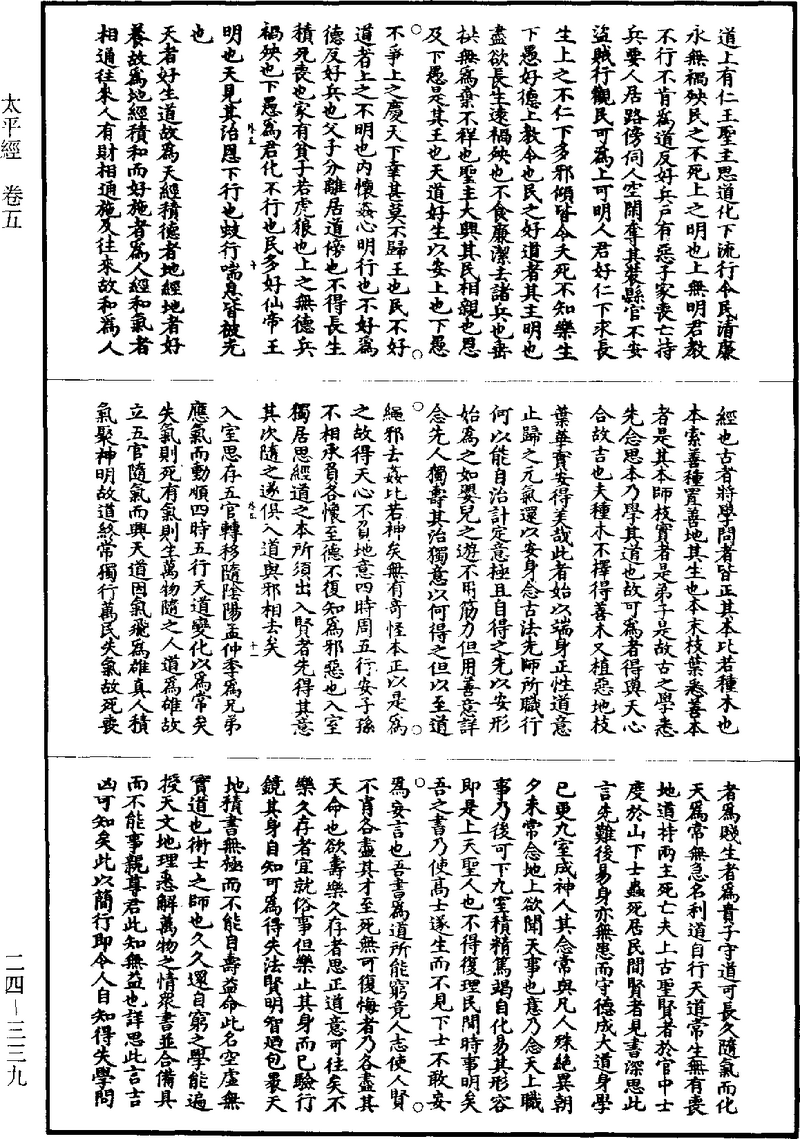 太平經 卷五
二四－三三九
道上有仁王聖主思道化下流行令民清廉
永無禍殃民之不死上之明也上無明君教
不行不肯爲道反好兵戶有惡子家喪亡持
兵要人居路傍伺人空閑奪其裝縣官不安
盜賊行觀民可爲上可明人君好仁下求長
生上之不仁下多邪傾皆令夭死不知樂生
下愚好德上教令也民之好道者其主明也
盡欲長生遠禍殃也不食廉潔去諸兵也垂
拱無爲棄不祥也聖主大興其民相親也恩
及下愚是其王也天道好生以安上也下愚
不爭上之慶天下幸甚莫不歸王也民不好
道者上之不明也内懷姦心明行也不好爲
德反好兵也父子分離居道傍也不得長生
積死喪也家有貧子若虎狼也上之無德兵
禍殃也下愚爲君化不行也民多好仙帝王
明也天見其治恩下行也蚑行喘息皆被光
也
天者好生道故爲天經積德者地經地者好
養故爲地經積和而好施者爲人經和氣者
相通往來人有財相通施及往來故和爲人
經也古者將學問者皆正其本比若種木也
本索善種置善地其生也本末枝葉悉善本
者是其本師枝實者是弟子是故古之學悉
先念思本乃學其道也故可爲者得與天心
合故吉也夫種木不擇得善木又植惡地枝
葉華實安得美哉此者始以端身正性道意
止歸之元氣還以安身念古法先師所職行
何以能自治計定意極且自得之先以安形
始爲之如嬰兒之遊不用筋力但用善意詳
念先人獨壽其治獨意以何得之但以至道
繩邪去姦比若神矣無有奇怪本正以是爲
之故得天心不負地意四時周五行安子孫
不相承負各懷至德不復知爲邪惡也入室
獨居思經道之本所須出入賢者先得其意
其次隨之遂俱入道與邪相去矣
入室思存五官轉移隨陰陽孟仲季爲兄弟
應氣而動順四時五行天道變化以爲常矣
失氣則死有氣則生萬物隨之人道爲雄故
立五官隨氣而興天道因氣飛爲雄真人積
氣聚神明故道終常獨行萬民失氣故死喪
者爲賤生者爲貴子守道可長久隨氣而化
天爲常無急名利道自行天道常生無有喪
地道持兩主死亡夫上古聖賢者於官中士
度於山下士蟲死居民間賢者見書深思此
言先難後易身亦無患而守德成大道身學
已更九室成神人其念常與凡人殊絶異朝
夕來常念地上欲聞天事也意乃念天上職
事乃後可下九室積精篤竭自化易其形容
即是上天聖人也不得復理民間時事明矣
吾之書乃使高士遂生而不見下士不敢妄
爲妄言也吾書爲道所能窮竟人志使人賢
不肖各盡其才至死無可復悔者乃各盡其
天命也欲壽樂久存者思正道意可往矣不
樂久存者宜就俗事但樂止其身而已驗行
鏡其身自知可爲得失法賢明智迺包裹天
地積書無極而不能自壽益命此名空虛無
實道也術士之師也久久還自窮之學能遍
授天文地理悉解萬物之情衆書並合備具
而不能事親尊君此知無益也詳思此言吉
凶可知矣此以簡行即令人自知得失學問